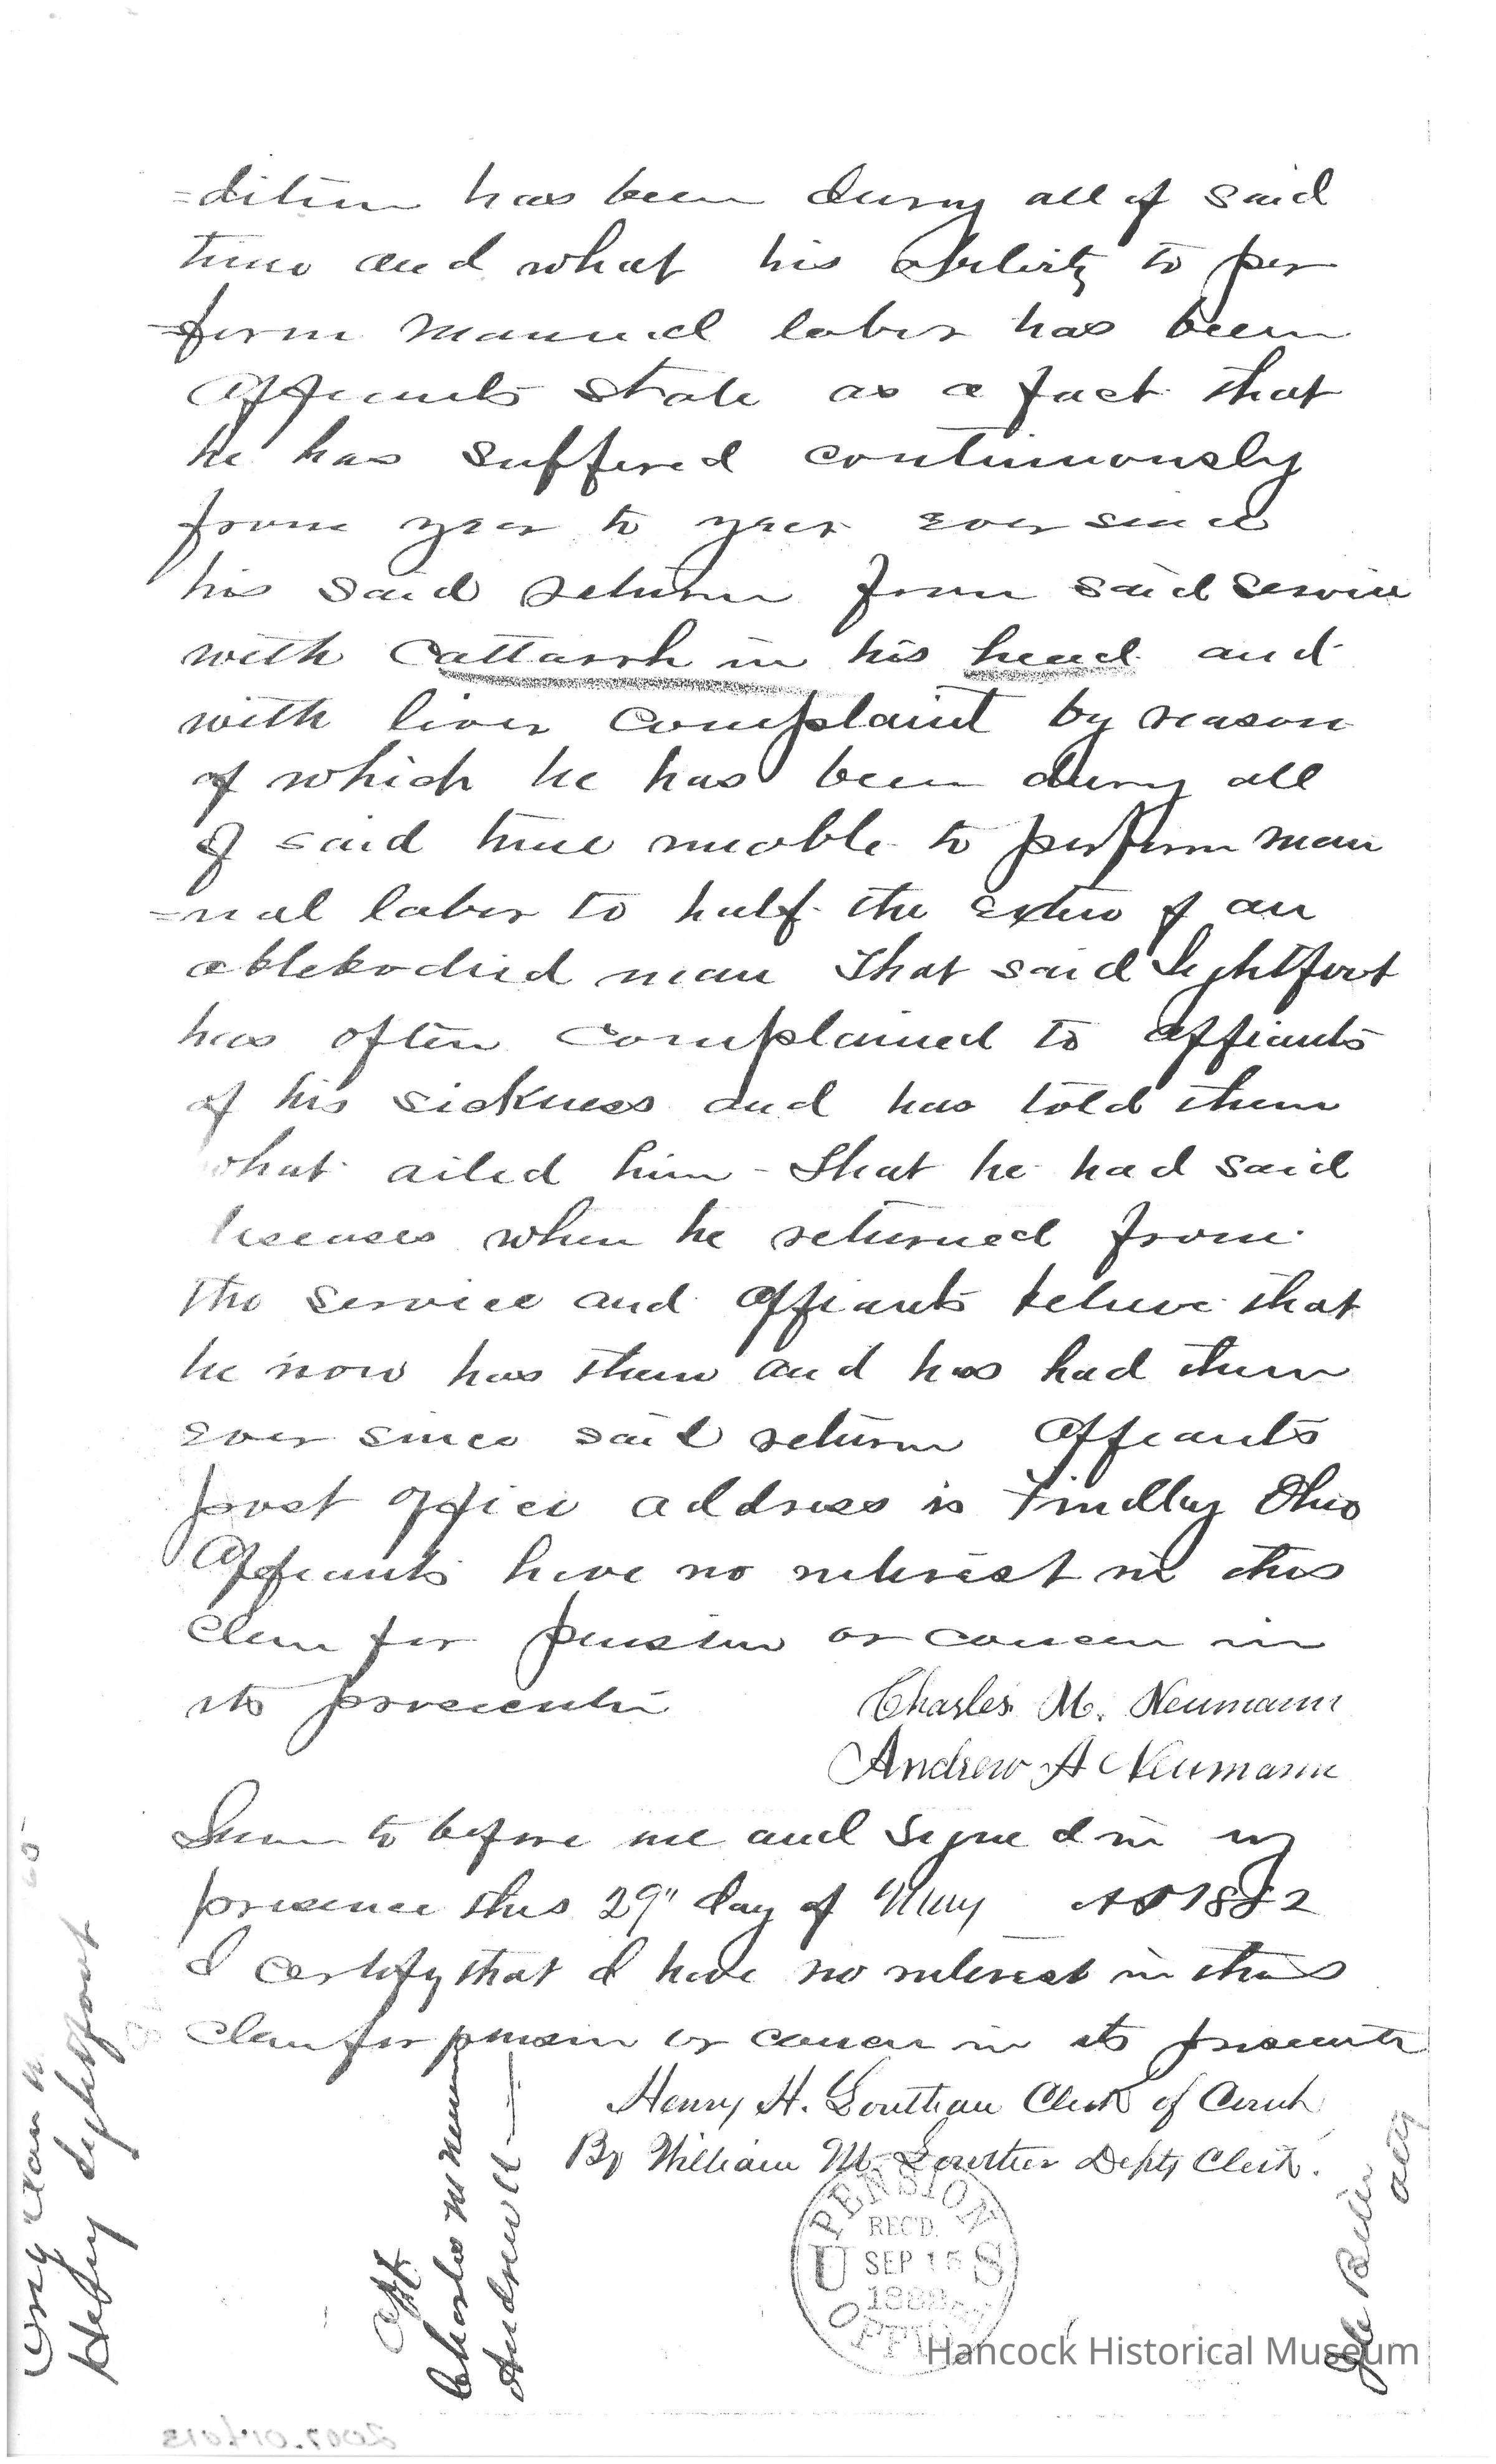 =dition has been during all of said
time and what his ability to per
form manual labor has been
Affiants state as a fact that
he has suffered continuously
from year to year ever since
his said return from said service
with cattarrh in his head and
with liver complaint by reason
of which he has been during all
of said time unable to perform man
=ual labor to half the extent of an
ablebodied man That said Lightfoot
has often complained to affiants
of his sickness and has told them
what ailed him - That he had said
diseases when he returned from
the service and affiants believe that
he now has them and has had them
ever since said return Affiants
post office address is Findlay Ohio
Affiants have no interest in this
claim for pension or concern in
its prosecution
Charles M. Neumann
Andrew A Neumann
Sworn to before me and signed in my
presence this 29" day of May AD 1882
I certify that I have no interest in this
claim for pension or concern in its prosecution
Henry H. Louthan Clerk of Court
By William M. Louther Depty Clerk.
Lightfoot
Aff
Charles M Neumann
Andrew A
Atty
U S PENSION OFFICE
REC'D.
SEP 15
188
Hancock Historical Museum